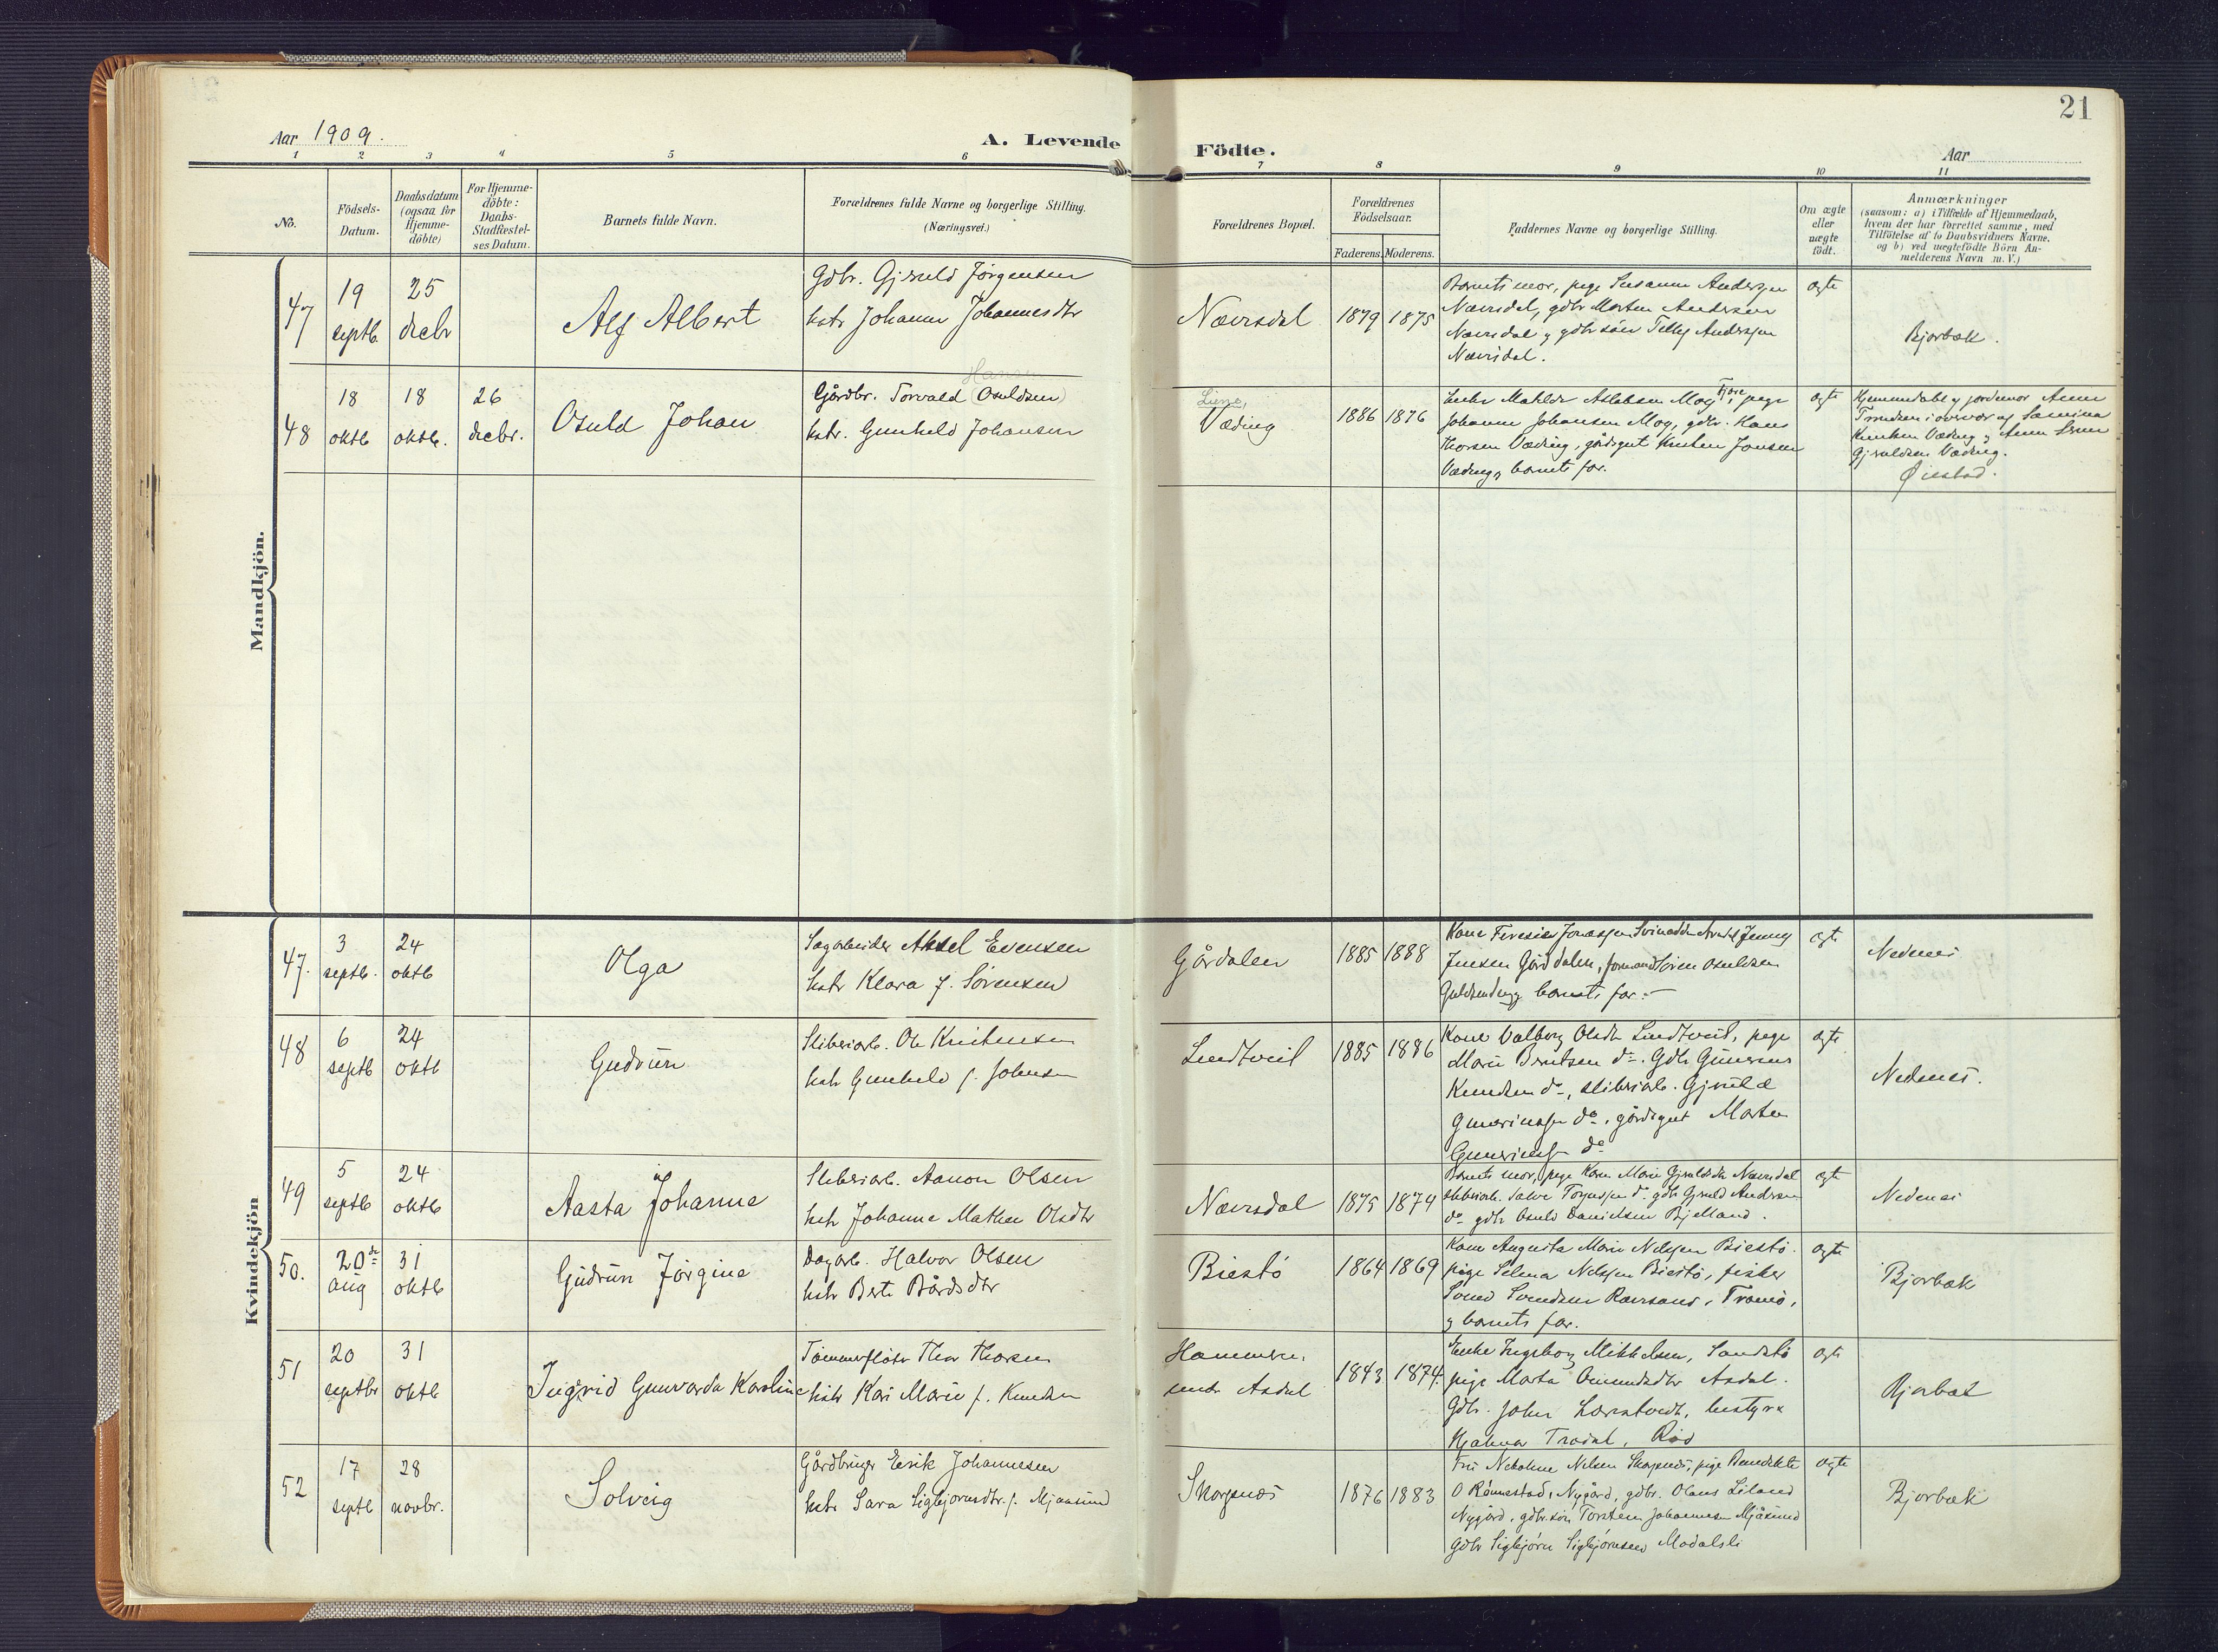 21
Aar 1909.
A. Levende Födte.
Aar
1 2 3 4 5 6 7 8 9 10 11
No.
Födsels-
Datum.
Daabsdatum
(ogsaa for
Hjemme-
döbte)
For Hjemme-
döbte:
Daabs-
Stadfæstel-
ses Datum.
Barnets fulde Navn.
Forældrenes fulde Navne og borgerlige Stilling.
(Næringsvei.)
Forældrenes Bopæl.
Forældrenes
Födselsaar.
Faderens. Moderens.
Faddernes Navne og borgerlige Stilling.
Om ægte
eller
uægte
födt.
Anmærkninger
(saasom: a) i Tilfælde af Hjemmedaab,
hvem der har forrettet samme, med
Tilföielse af to Daabsvidners Navne,
og b) ved uægtefödte Börn An-
melderens Navn m. V.)
Mandkjön.
47
19
septb
25
decbr
Alf Albert
Gdbr. Gjeruld Jørgensen
hstr Johanne Johannesdtr
Nævisdal
1879 1875
Barnets mor, pige Susanne Andersen
Nævisdal, gdbr Morten Andersen
Nævisdal og gdbrsön Tellef Andersen
Nævisdal.
ægte
Bjorbæk.
48
18
oktb
18
oktb.
26
decbr.
Osuld Johan
Hansen
Gårdbr. Torvald (Osuldsen)
hstr. Gunhild Johansen
Væding
1886 1876
Enke Mathilde Aslaksen Moy, pige
Johanne Johansen Moy, gdbr. Hans
Thorsen Væding, gårdsgut Knuten Jonsen
Væding, barnets far.
ægte
Hjemmedøbt af jordemor Anne
Gjeruldsen Væding.
Øiestad.
Kvindekjön
47.
3
septb.
24
oktb
Olga
Sagarbeider Aksel Evensen
hstr Klara f. Sörensen
Gårdalen
1885 1888
Jensen Gårddalen, formand Sören Osuldsen
barnets far.
ægte
Nedenes
48
6
septb
24
oktb
Gudrun
Sliberiarb. Ole Kristensen
hstr Gunhild f. Johnsen
Lindtveit
1885 1886
Kone Valborg Olsdtr Lindtveit, pige
Marie Berntsen do. Gdbr Gunerius
Knudsen do, sliberiarb. Gjeruld
Gunerius­sen do, gårdsgut Morten
Guneriussen do
ægte
Nedenes.
49
5
septb
24
oktb
Aasta Johanne
Sliberiarb. Aanon Olsen
hstr Johanne Mathea Olsdtr
Nævisdal
1875 1874
Barnets mor, pige Karen Marie Gjeruldsdtr Nævisdal
sliberiarb. Salve Torjussen do. gdbr Gjeruld Andersen
do gdbr Osuld Danielsen Bjelland.
ægte
Nedenes
50.
20de
aug
31
oktb
Gudrun Jörgine
Dagarb. Halvor Olsen
hstr Berte Bårdsdtr
Biestö
1864 1869
Kone Augusta Marie Nelsen Biestö.
pige Selena Nelsen Biestö, fisker
Svend Svendsen Ravesand, Tromö,
og barnets far.
ægte
Bjorbæk
51
20
septbr
31
oktb
Ingrid Gunvarda Karoline
Tømmerfløter Thor Thorsen
hstr Kari Marie f. Knudsen
Hammeren,
under Asdal
1843 1874
Enke Ingeborg Mikkelsen, Sandstö
pige Marta Omundsdtr Asdal.
Gdbr. John Løvestvedt, bestyrer
Hjalmar Trodal, Röd
ægte
Bjorbæk
52
17
septb
28
novbr.
Solveig
Gårdbruger Eerik Johannesen
hstr Sara Sigbjørnsdtr. f. Mjaasund
Skarpnes
1876 1883
Fru Nekoline Nelsen Skarpnes, pige Benedikte
O Rönnestad, Nygård, gdbr. Olaus Leland
Nygård, gdbr.sön Torstein Johannesen Mjåsund
gdbr Sigbjörn Sigbjörnsen Modalsli
ægte
Bjorbæk